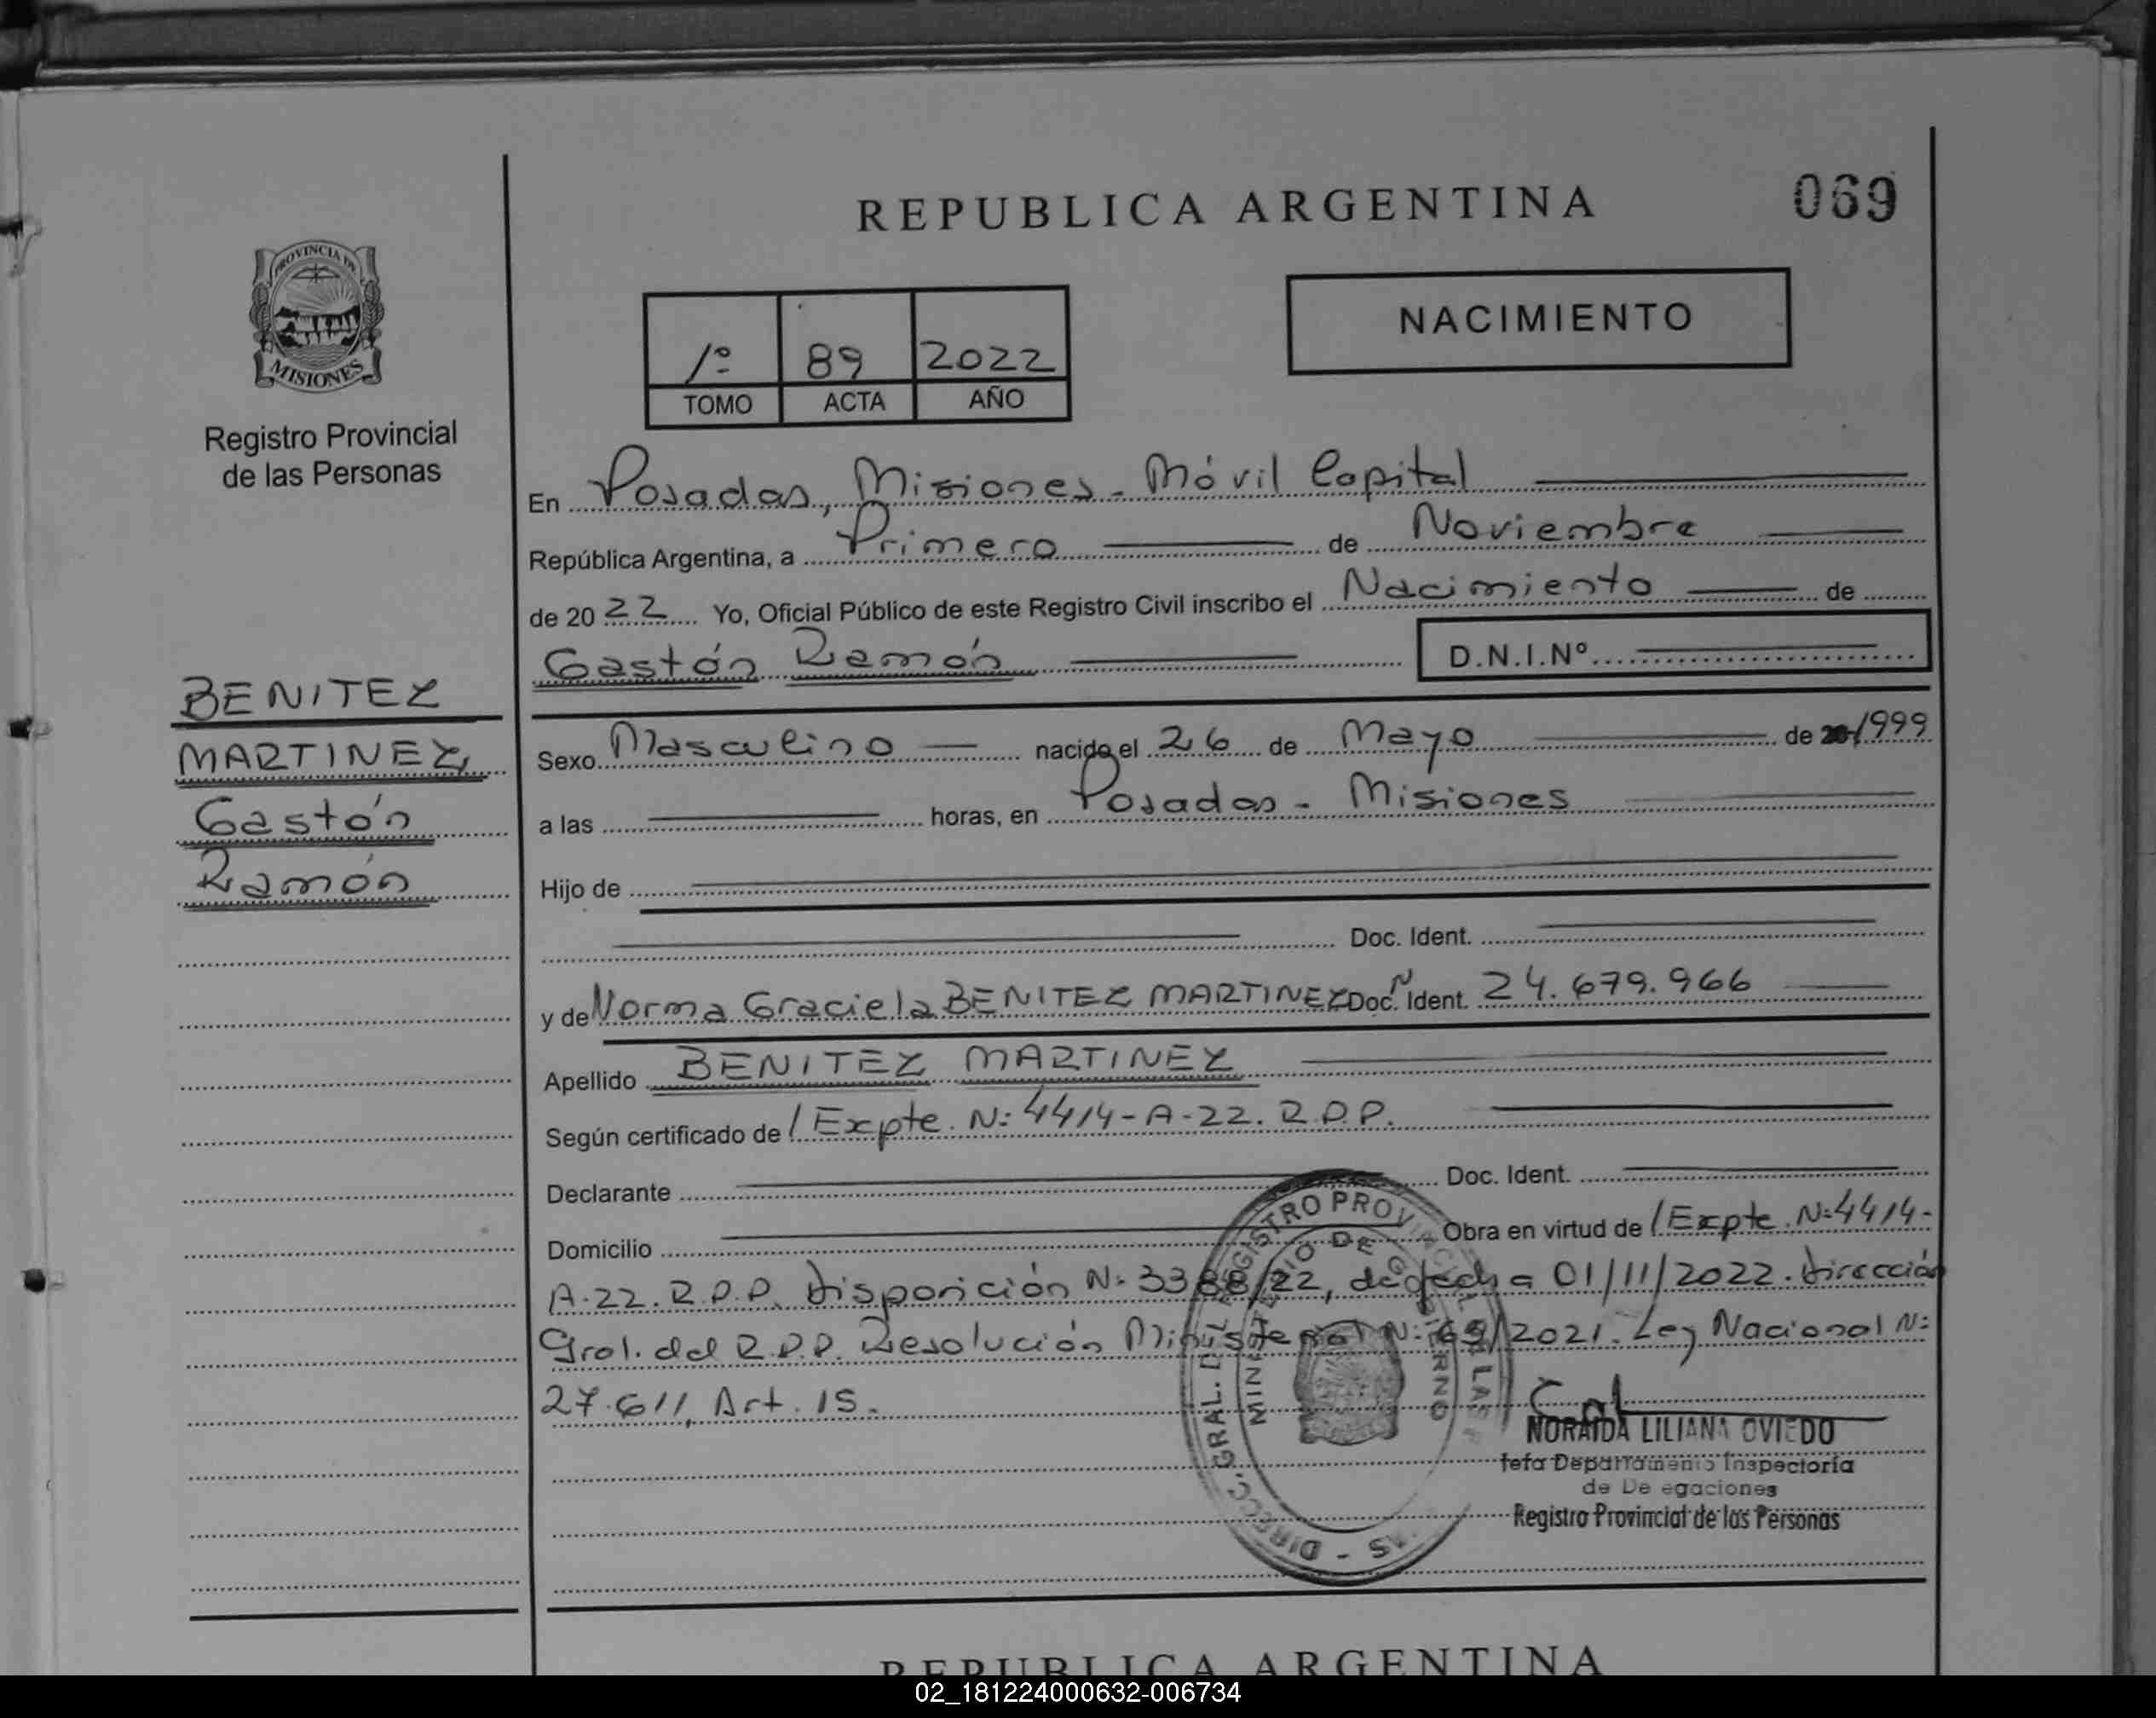 REPUBLICA ARGENTINA
069
PROVINCIA DE
MISIONES
Registro Provincial
de las Personas
1º 89 2022
TOMO ACTA AÑO
NACIMIENTO
En Posadas, Misiones - Móvil Capital
República Argentina, a Primero de Noviembre
de 20 22 Yo, Oficial Público de este Registro Civil inscribo el Nacimiento de
Gastón Ramón D.N.I.Nº
BENITEZ
MARTINEZ,
Gastón
Ramón
Sexo Masculino nacido el 26 de Mayo de 1999
a las horas, en Posadas - Misiones
Hijo de
Doc. Ident.
y de Norma Graciela BENITEZ MARTINEZ Doc. Ident. 24.679.966
Apellido BENITEZ MARTINEZ
Según certificado de / Expte. N: 4414-A-22. R.P.P.
Declarante Doc. Ident.
Domicilio Obra en virtud de / Expte. N: 4414-
A-22. R.P.P. Disposición N: 3388/22, de fecha 01/11/2022. Dirección
Gral. del R.P.P. Resolución Ministerial N: 69/2021. Ley Nacional N:
27.611, Art. 15.
DIRECC. GRAL. DEL REGISTRO PROVINCIAL
MINISTERIO DE GOBIERNO
NORAIDA LILIANA OVIEDO
Jefa Departamento Inspectoría
de De egaciones
Registro Provincial de las Personas
REPUBLICA ARGENTINA
02_181224000632-006734